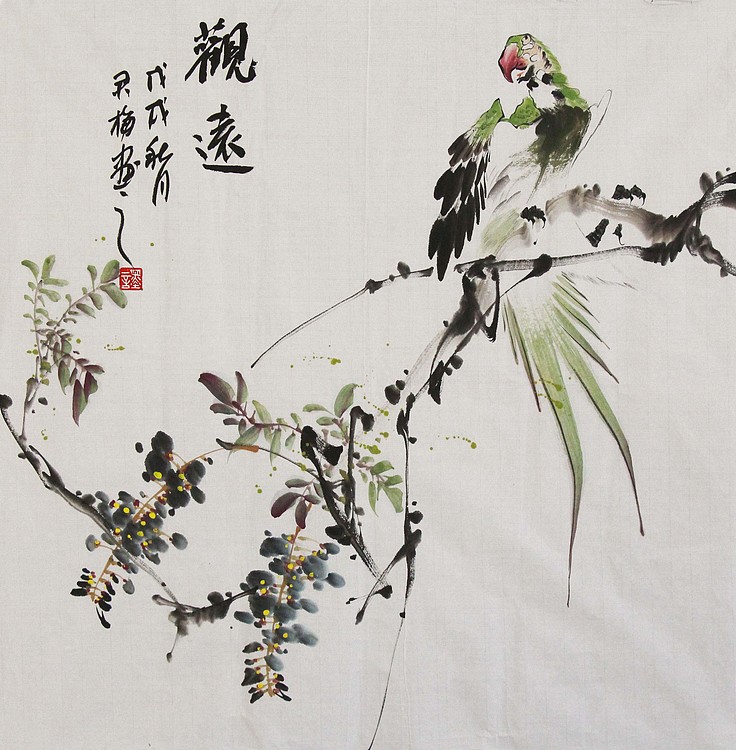 觀遠
戊戌秋月
君梅畫之
墨言